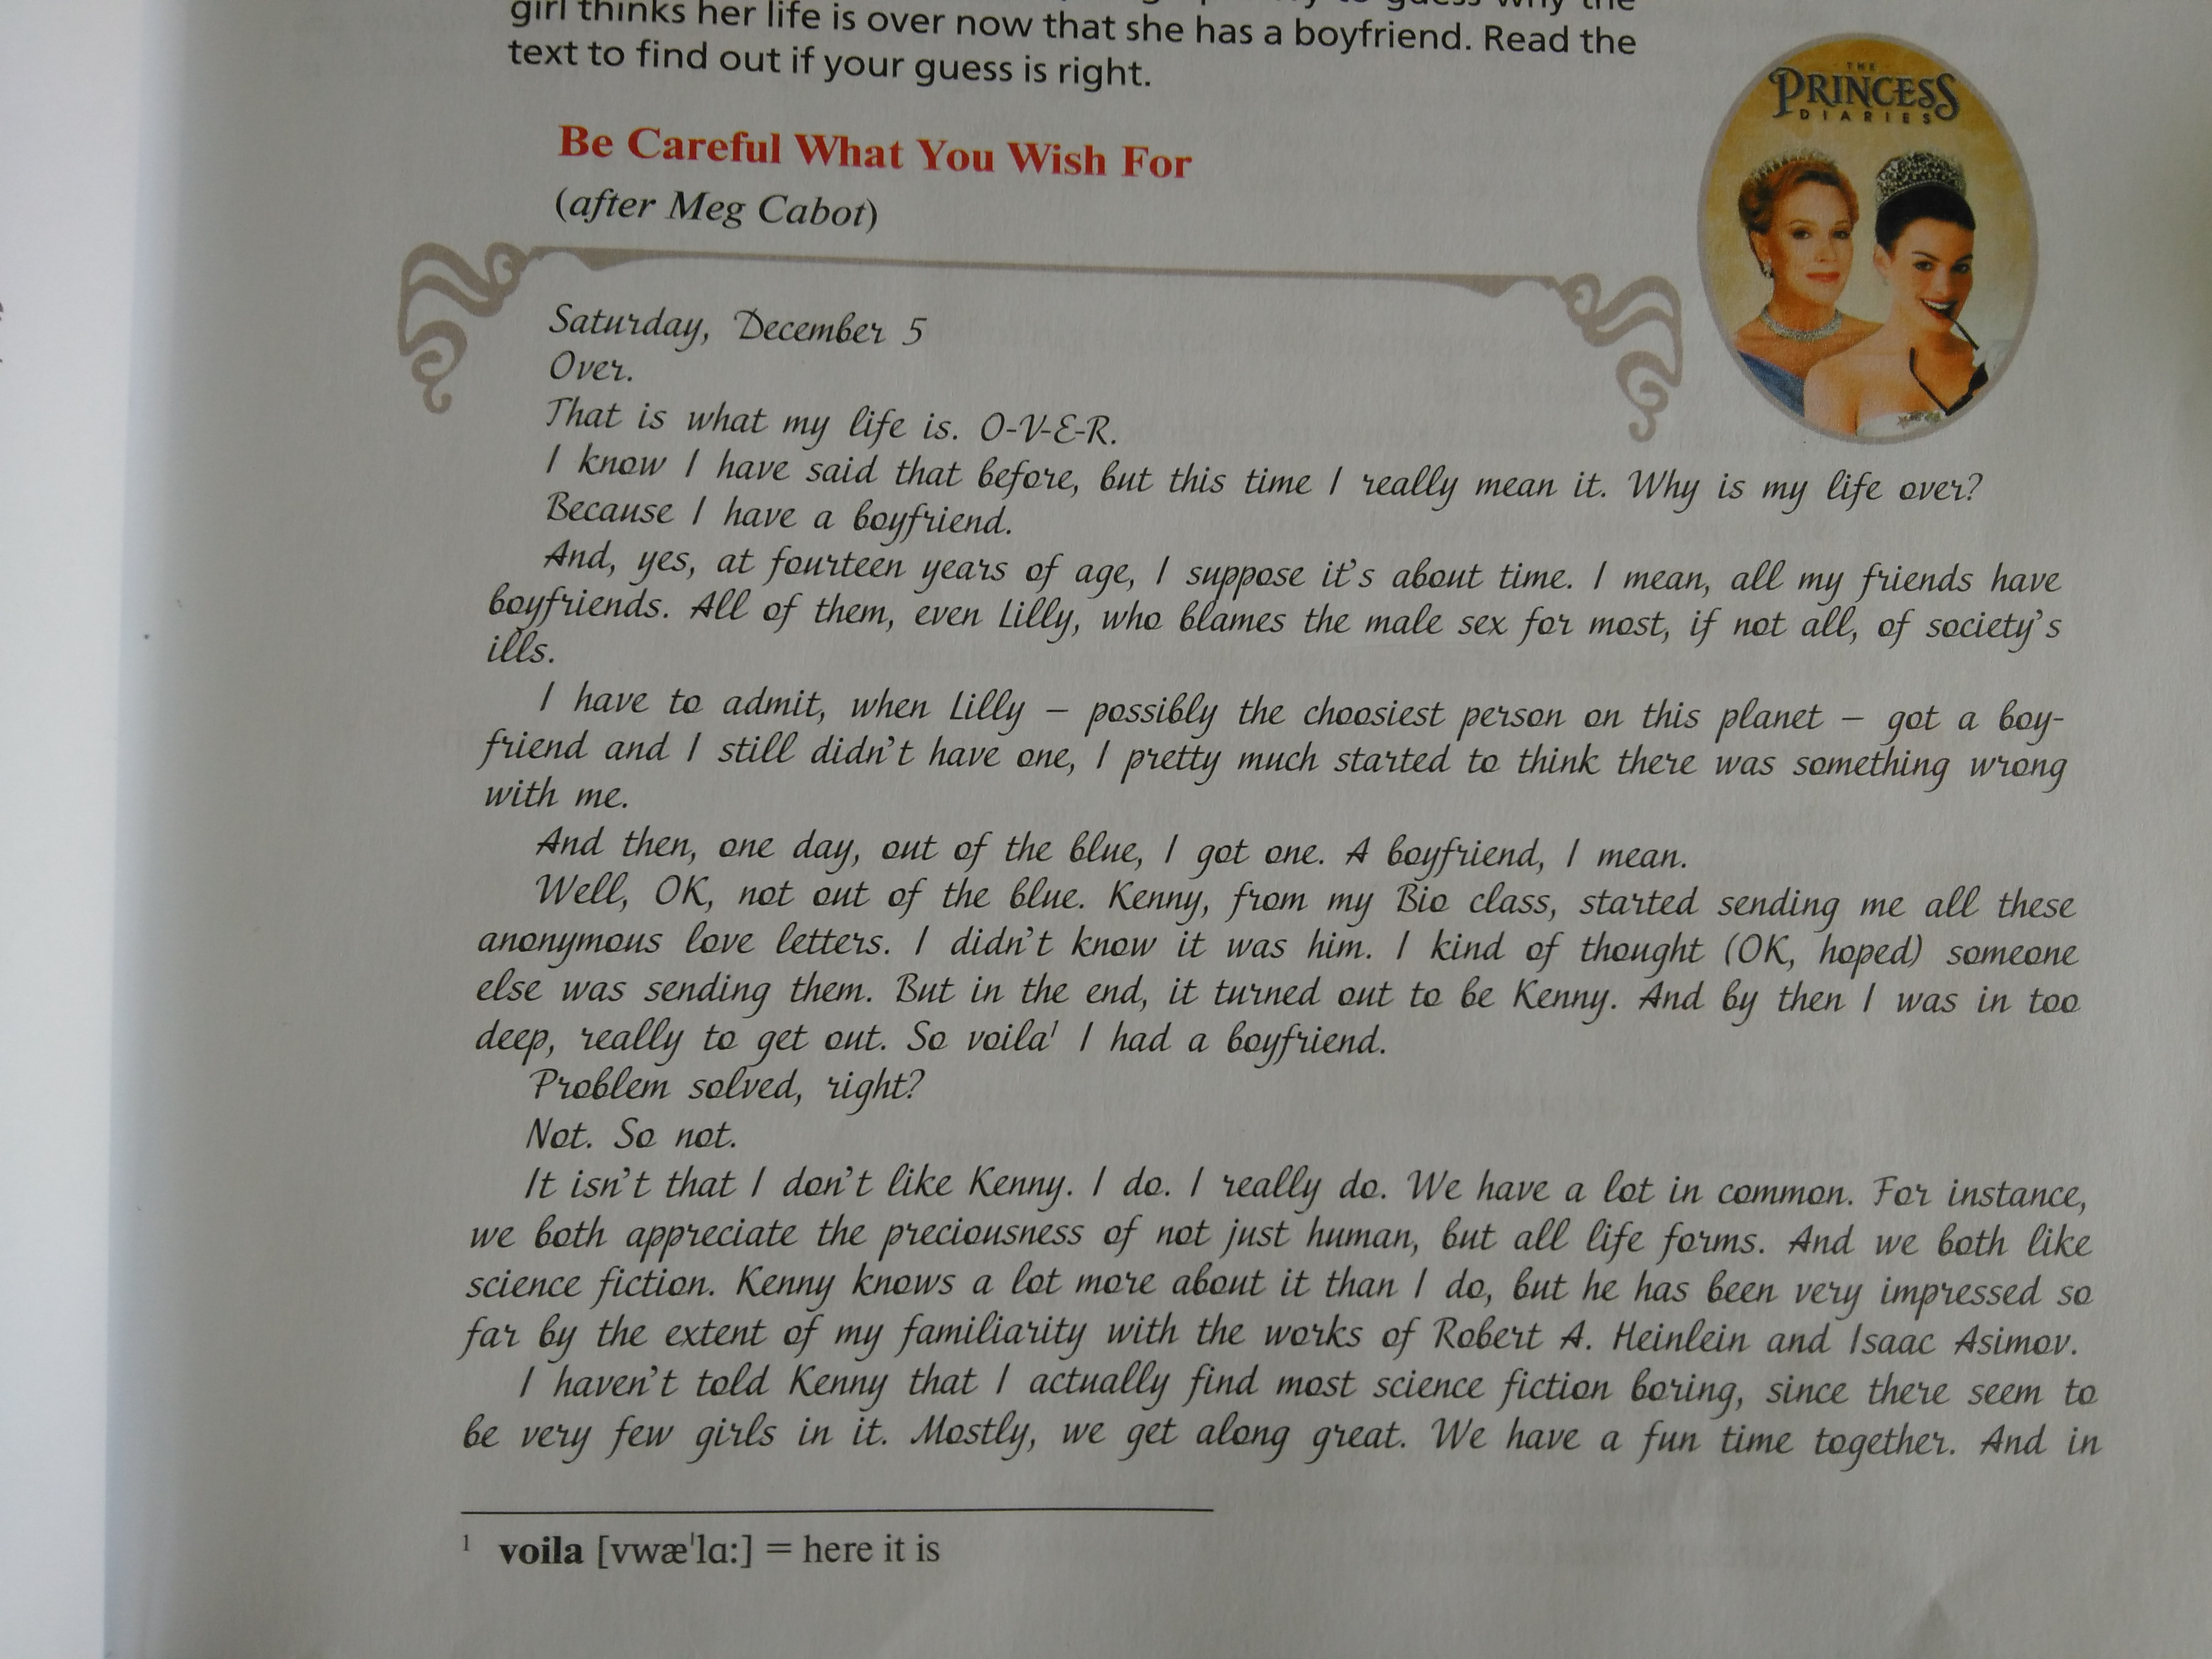 girl thinks her life is over now that she has a boyfriend. Read the
text to find out if your guess is right.
THE
PRINCESS
DIARIES
Be Careful What You Wish For
(after Meg Cabot)
Saturday, December 5
Over.
That is what my life is. O-V-E-R.
I know I have said that before, but this time I really mean it. Why is my life over?
Because I have a boyfriend.
And, yes, at fourteen years of age, I suppose it's about time. I mean, all my friends have
boyfriends. All of them, even Lilly, who blames the male sex for most, if not all, of society's
ills.
I have to admit, when Lilly – possibly the choosiest person on this planet – got a boy-
friend and I still didn't have one, I pretty much started to think there was something wrong
with me.
And then, one day, out of the blue, I got one. A boyfriend, I mean.
Well, OK, not out of the blue. Kenny, from my Bio class, started sending me all these
anonymous love letters. I didn't know it was him. I kind of thought (OK, hoped) someone
else was sending them. But in the end, it turned out to be Kenny. And by then I was in too
deep, really to get out. So voila¹ I had a boyfriend.
Problem solved, right?
Not. So not.
It isn't that I don't like Kenny. I do. I really do. We have a lot in common. For instance,
we both appreciate the preciousness of not just human, but all life forms. And we both like
science fiction. Kenny knows a lot more about it than I do, but he has been very impressed so
far by the extent of my familiarity with the works of Robert A. Heinlein and Isaac Asimov.
I haven't told Kenny that I actually find most science fiction boring, since there seem to
be very few girls in it. Mostly, we get along great. We have a fun time together. And in
¹ voila [vwæˈlɑː] = here it is